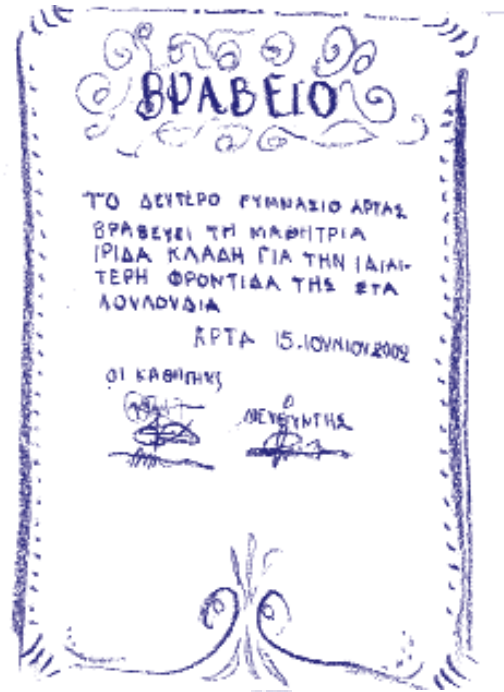 ΒΡΑΒΕΙΟ
ΤΟ ΔΕΥΤΕΡΟ ΓΥΜΝΑΣΙΟ ΑΡΤΑΣ
ΒΡΑΒΕΥΕΙ ΤΗ ΜΑΘΗΤΡΙΑ
ΙΡΙΔΑ ΚΛΑΔΗ ΓΙΑ ΤΗΝ ΙΔΙΑΙ-
ΤΕΡΗ ΦΡΟΝΤΙΔΑ ΤΗΣ ΣΤΑ
ΛΟΥΛΟΥΔΙΑ
ΑΡΤΑ 15.ΙΟΥΝΙΟΥ 2002
ΟΙ ΚΑΘΗΓΗΤΕΣ
Ο
ΔΙΕΥΘΥΝΤΗΣ